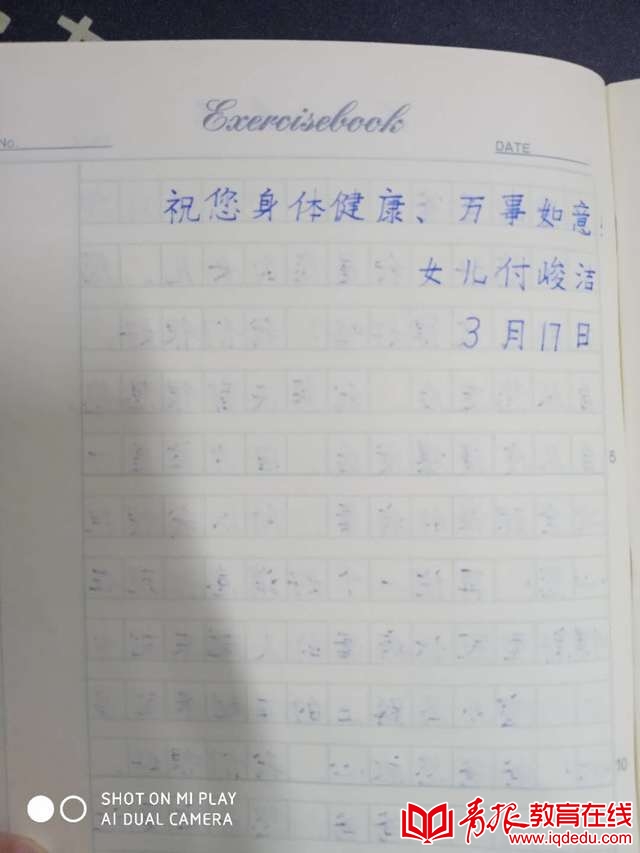 Exercisebook
No.
DATE
祝您身体健康、万事如意!
女儿付峻洁
3月17日
5
10
SHOT ON MI PLAY
AI DUAL CAMERA
青报教育在线
www.iqdedu.com